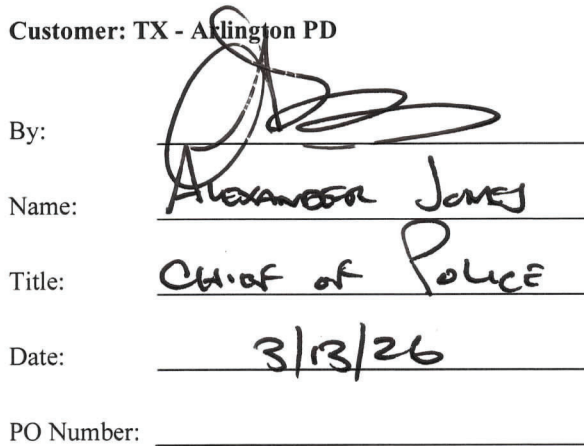 Customer: TX - Arlington PD
By:
Name: ALEXANDER JONES
Title: CHIEF OF POLICE
Date: 3/13/26
PO Number: